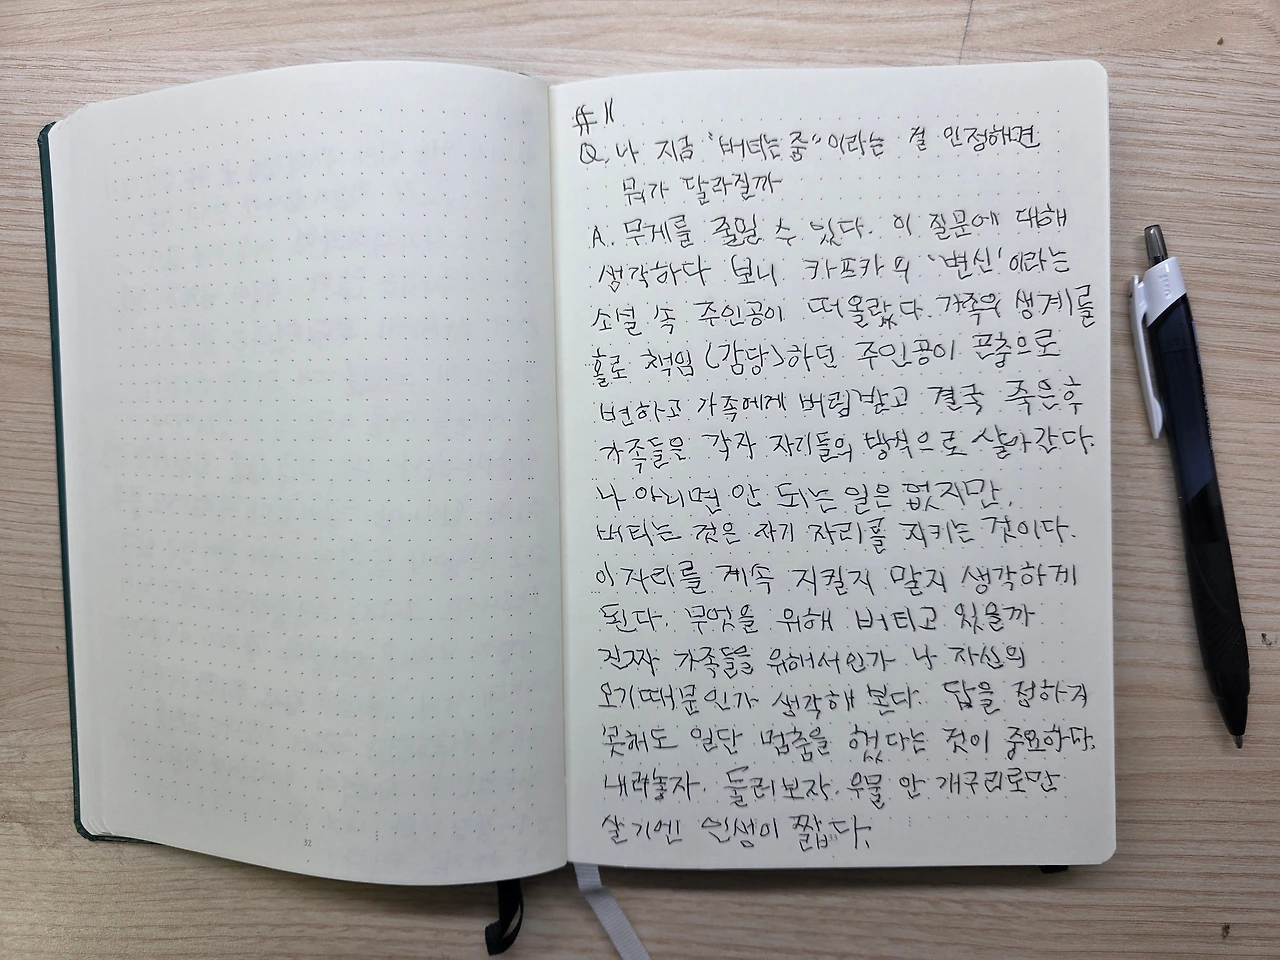 #11
Q. 나 지금 "버티는 중"이라는 걸 인정해면
뭐가 달라질까
A. 무게를 줄일 수 있다. 이 질문에 대해
생각하다 보니 카프카의 '변신'이라는
소설 속 주인공이 떠올랐다. 가족의 생계를
홀로 책임(감당)하던 주인공이 곤충으로
변하고 가족에게 버림받고 결국 죽은후
가족들은 각자 자리들의 방식으로 살아간다.
나 아니면 안 되는 일은 없지만,
버티는 것은 자기 자리를 지키는 것이다.
이 자리를 계속 지킬지 말지 생각하게
된다. 무엇을 위해 버티고 있을까
진짜 가족들을 위해서인가 나 자신의
오기때문인가 생각해 본다. 답을 정하지
못해도 일단 멈춤을 했다는 것이 중요하다.
내려놓자. 둘러보자. 우물 안 개구리로만
살기엔 인생이 짧다.
32
33